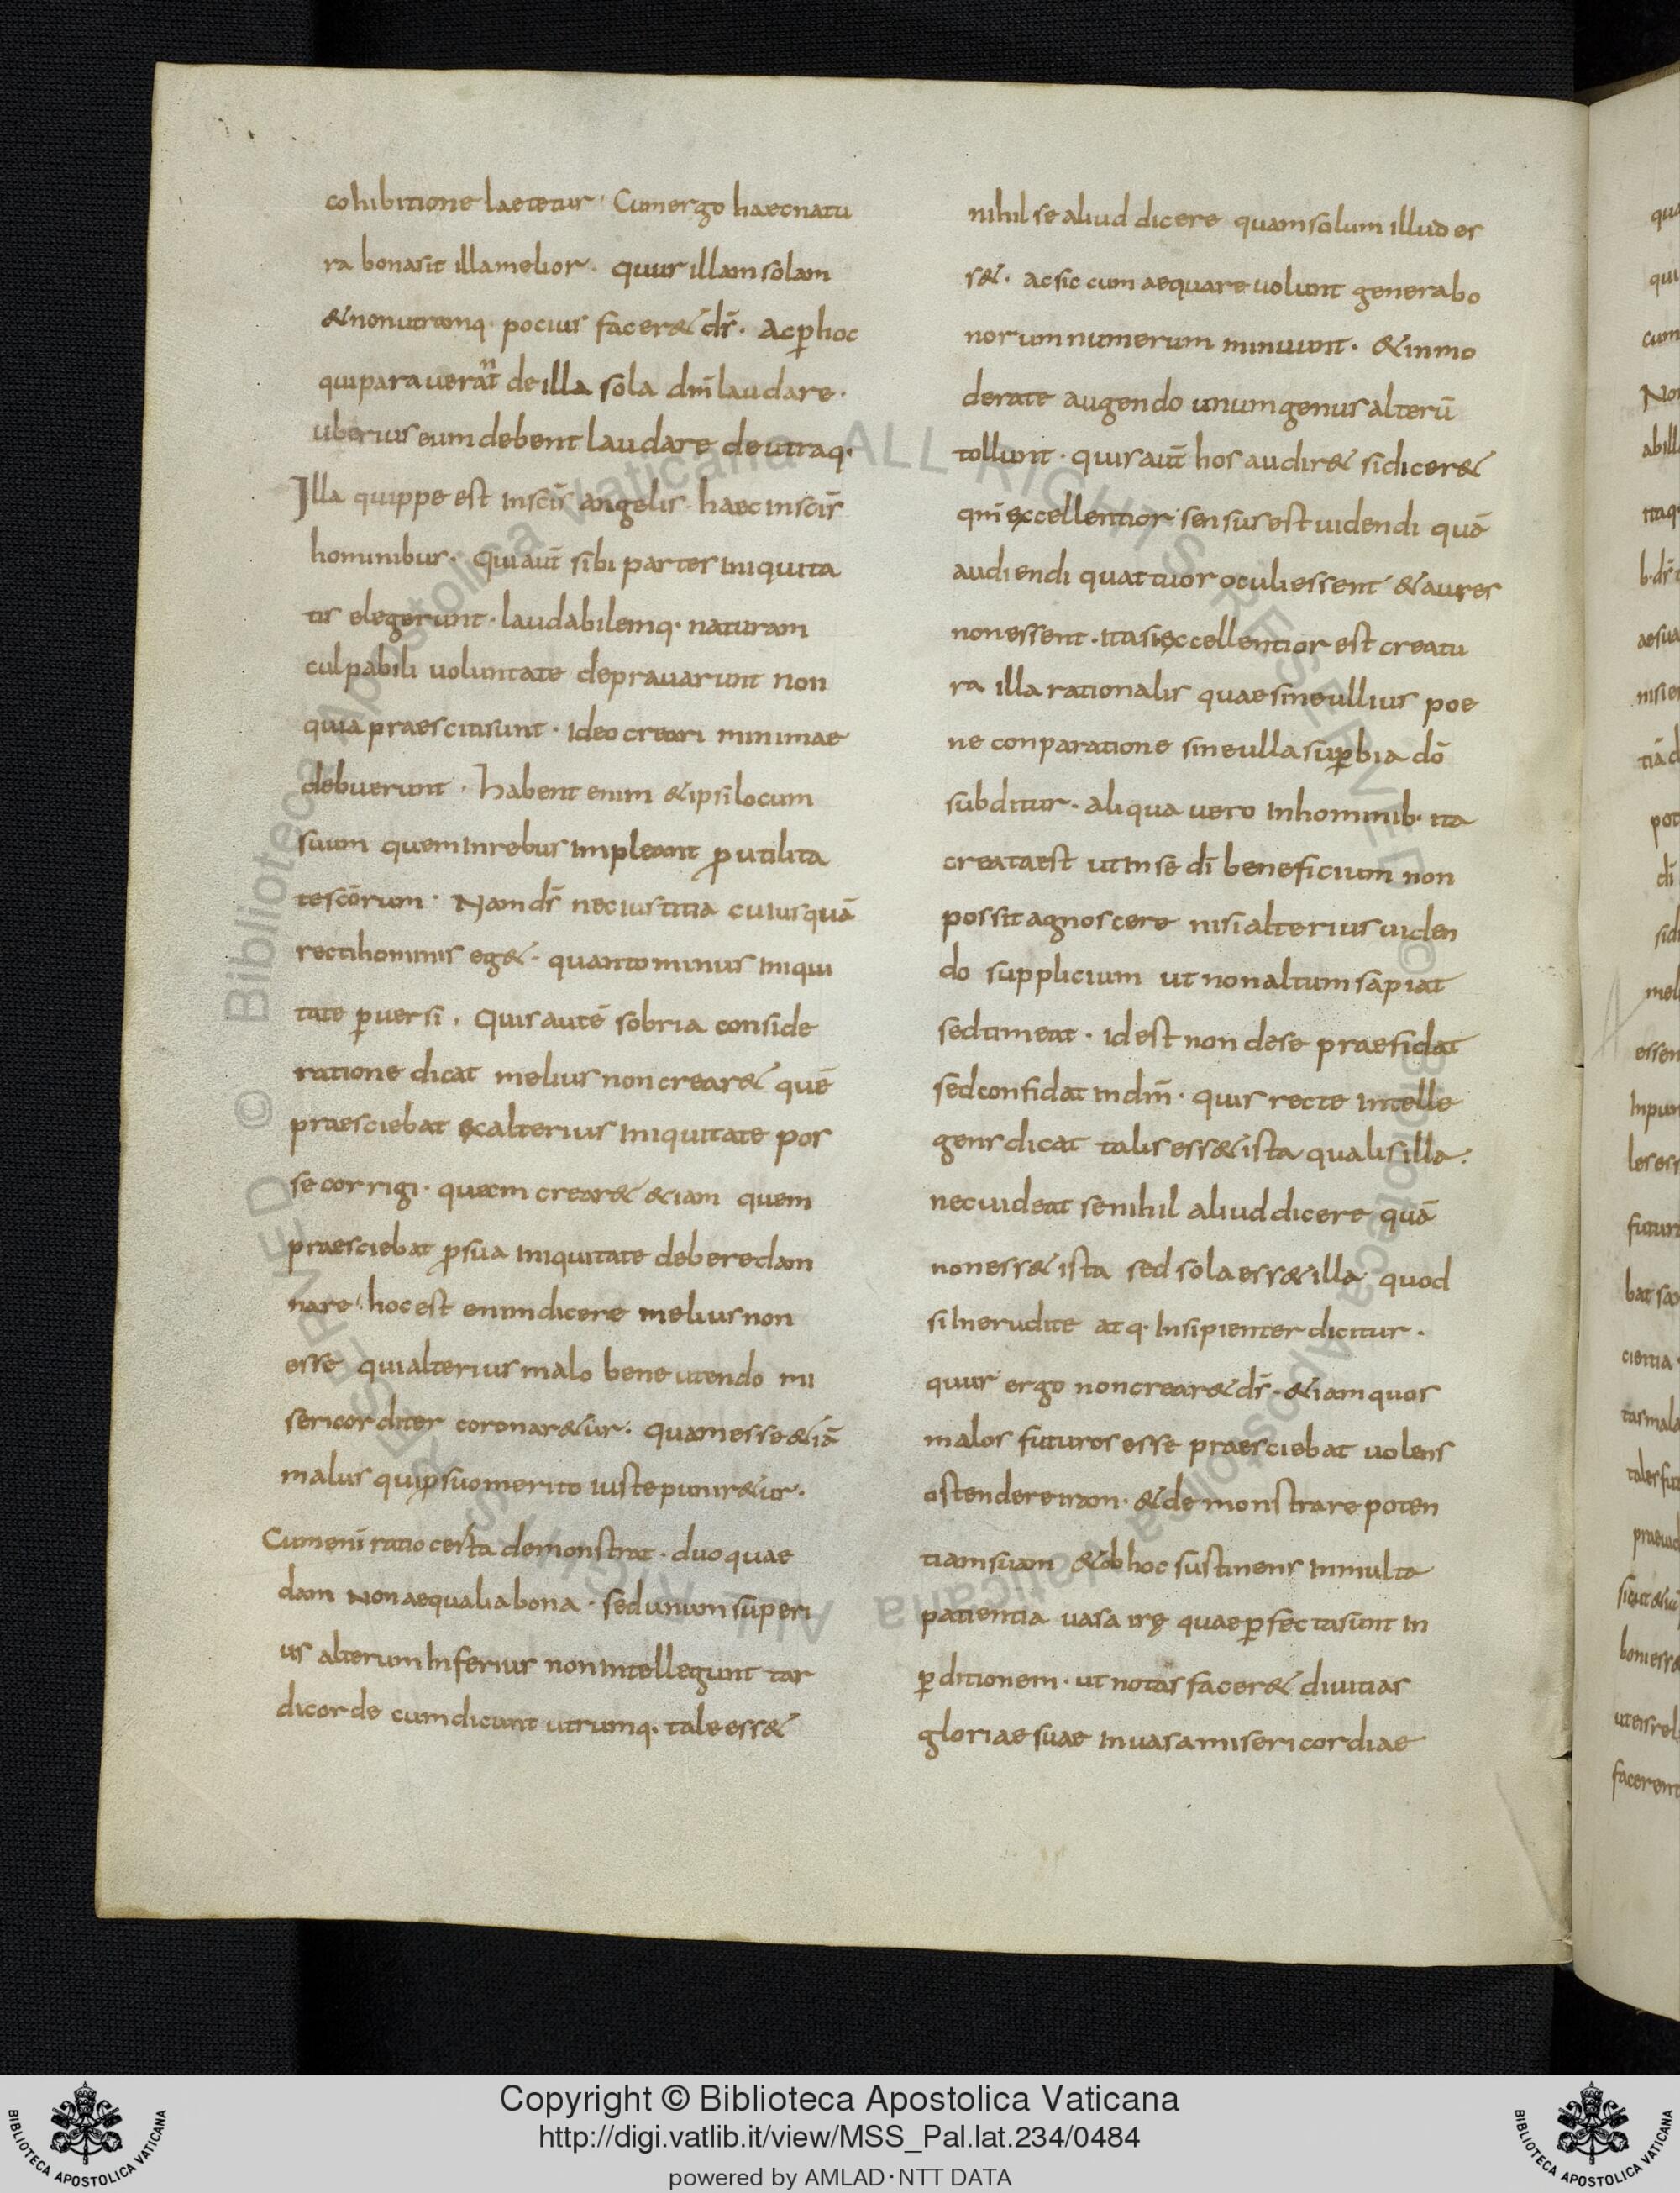 cohibitione laetetur · Cum ergo haec natu
ra bona sit illa melior · quur illam solam
& non utramq· pocius facer& dš · Ac ꝑ hoc
qui paraverant de illa sola dm̄ laudare ·
uberius eum debent laudare de utraq·
Illa quippe est in scīs angelis · haec in scīs
hominibus · Qui aut̄ sibi partes iniquita
tis elegerunt · laudabilemq· naturam
culpabili voluntate depravarunt non
quia praesciti sunt · ideo creari minimae
debuerunt · habent enim & ipsi locum
suum quem in rebus impleant ꝓ utilita
te scōrum · Nam dš nec iustitia cuiusquā
recti hominis eg& · quanto minus iniqui
tate ꝑversi · Quis autē sobria conside
ratione dicat melius non crear& quē
praesciebat ex alterius iniquitate pos
se corrigi · quam crear& &iam quem
praesciebat ꝓ sua iniquitate debere dam
nare · hoc est enim dicere melius non
esse qui alterius malo bene utendo mi
sericorditer coronar&ur · quam esse &iā
malus qui ꝓ suo merito iuste punir&ur ·
Cum enī ratio certa demonstrat · duo quae
dam Non aequalia bona · sed unum superi
us alterum inferius non intellegunt tar
di corde cum dicunt utrumq· tale ess&
nihil se aliud dicere quam solum illud es
s& · ac sic cum aequare volunt genera bo
norum numerum minuunt · & inmo
derate augendo unum genus alterū
tollunt · quis aut̄ hos audir& si dicer&
qm̄ excellentior sensus est videndi quā
audiendi quattuor oculi essent & aures
non essent · ita si excellentior est creatu
ra illa rationalis quae sine ullius poe
ne conparatione sine ulla suꝑbia dō
subditur · aliqua vero in hominib· ita
creata est ut in se dī beneficium non
possit agnoscere nisi alterius viden
do supplicium ut non altum sapiat
sed timeat · id est non de se praefidat
sed confidat in dm̄ · quis recte intelle
gens dicat talis ess& ista qualis illa ·
nec videat se nihil aliud dicere quā
non ess& ista sed sola ess& illa · quod
si inerudite atq· insipienter dicitur ·
quur ergo non crear& dš · &iam quos
malos futuros esse praesciebat volens
ostendere iram · & demonstrare poten
tiam suam & ob hoc sustinens in multa
patientia vasa irę quae ꝑfecta sunt in
ꝑditionem · ut notas facer& divitias
gloriae suae in vasa misericordiae
Copyright © Biblioteca Apostolica Vaticana
http://digi.vatlib.it/view/MSS_Pal.lat.234/0484
powered by AMLAD·NTT DATA
BIBLIOTECA APOSTOLICA VATICANA
BIBLIOTECA APOSTOLICA VATICANA